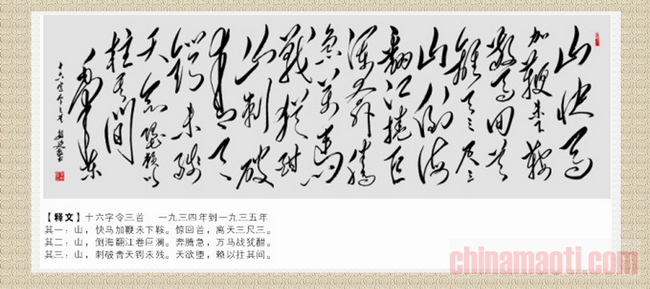 山快马
加鞭未下鞍
驚回首
離天三尺三
山倒海
翻江捲巨
瀾奔騰
急萬馬
戰猶酣
山刺破
青天
锷未殘
天欲墮賴以
拄其間
毛澤東
十六字令三首
【释文】十六字令三首 一九三四年到一九三五年
其一：山，快马加鞭未下鞍。惊回首，离天三尺三。
其二：山，倒海翻江卷巨澜。奔腾急，万马战犹酣。
其三：山，刺破青天锷未残。天欲堕，赖以拄其间。
chinamaoti.com